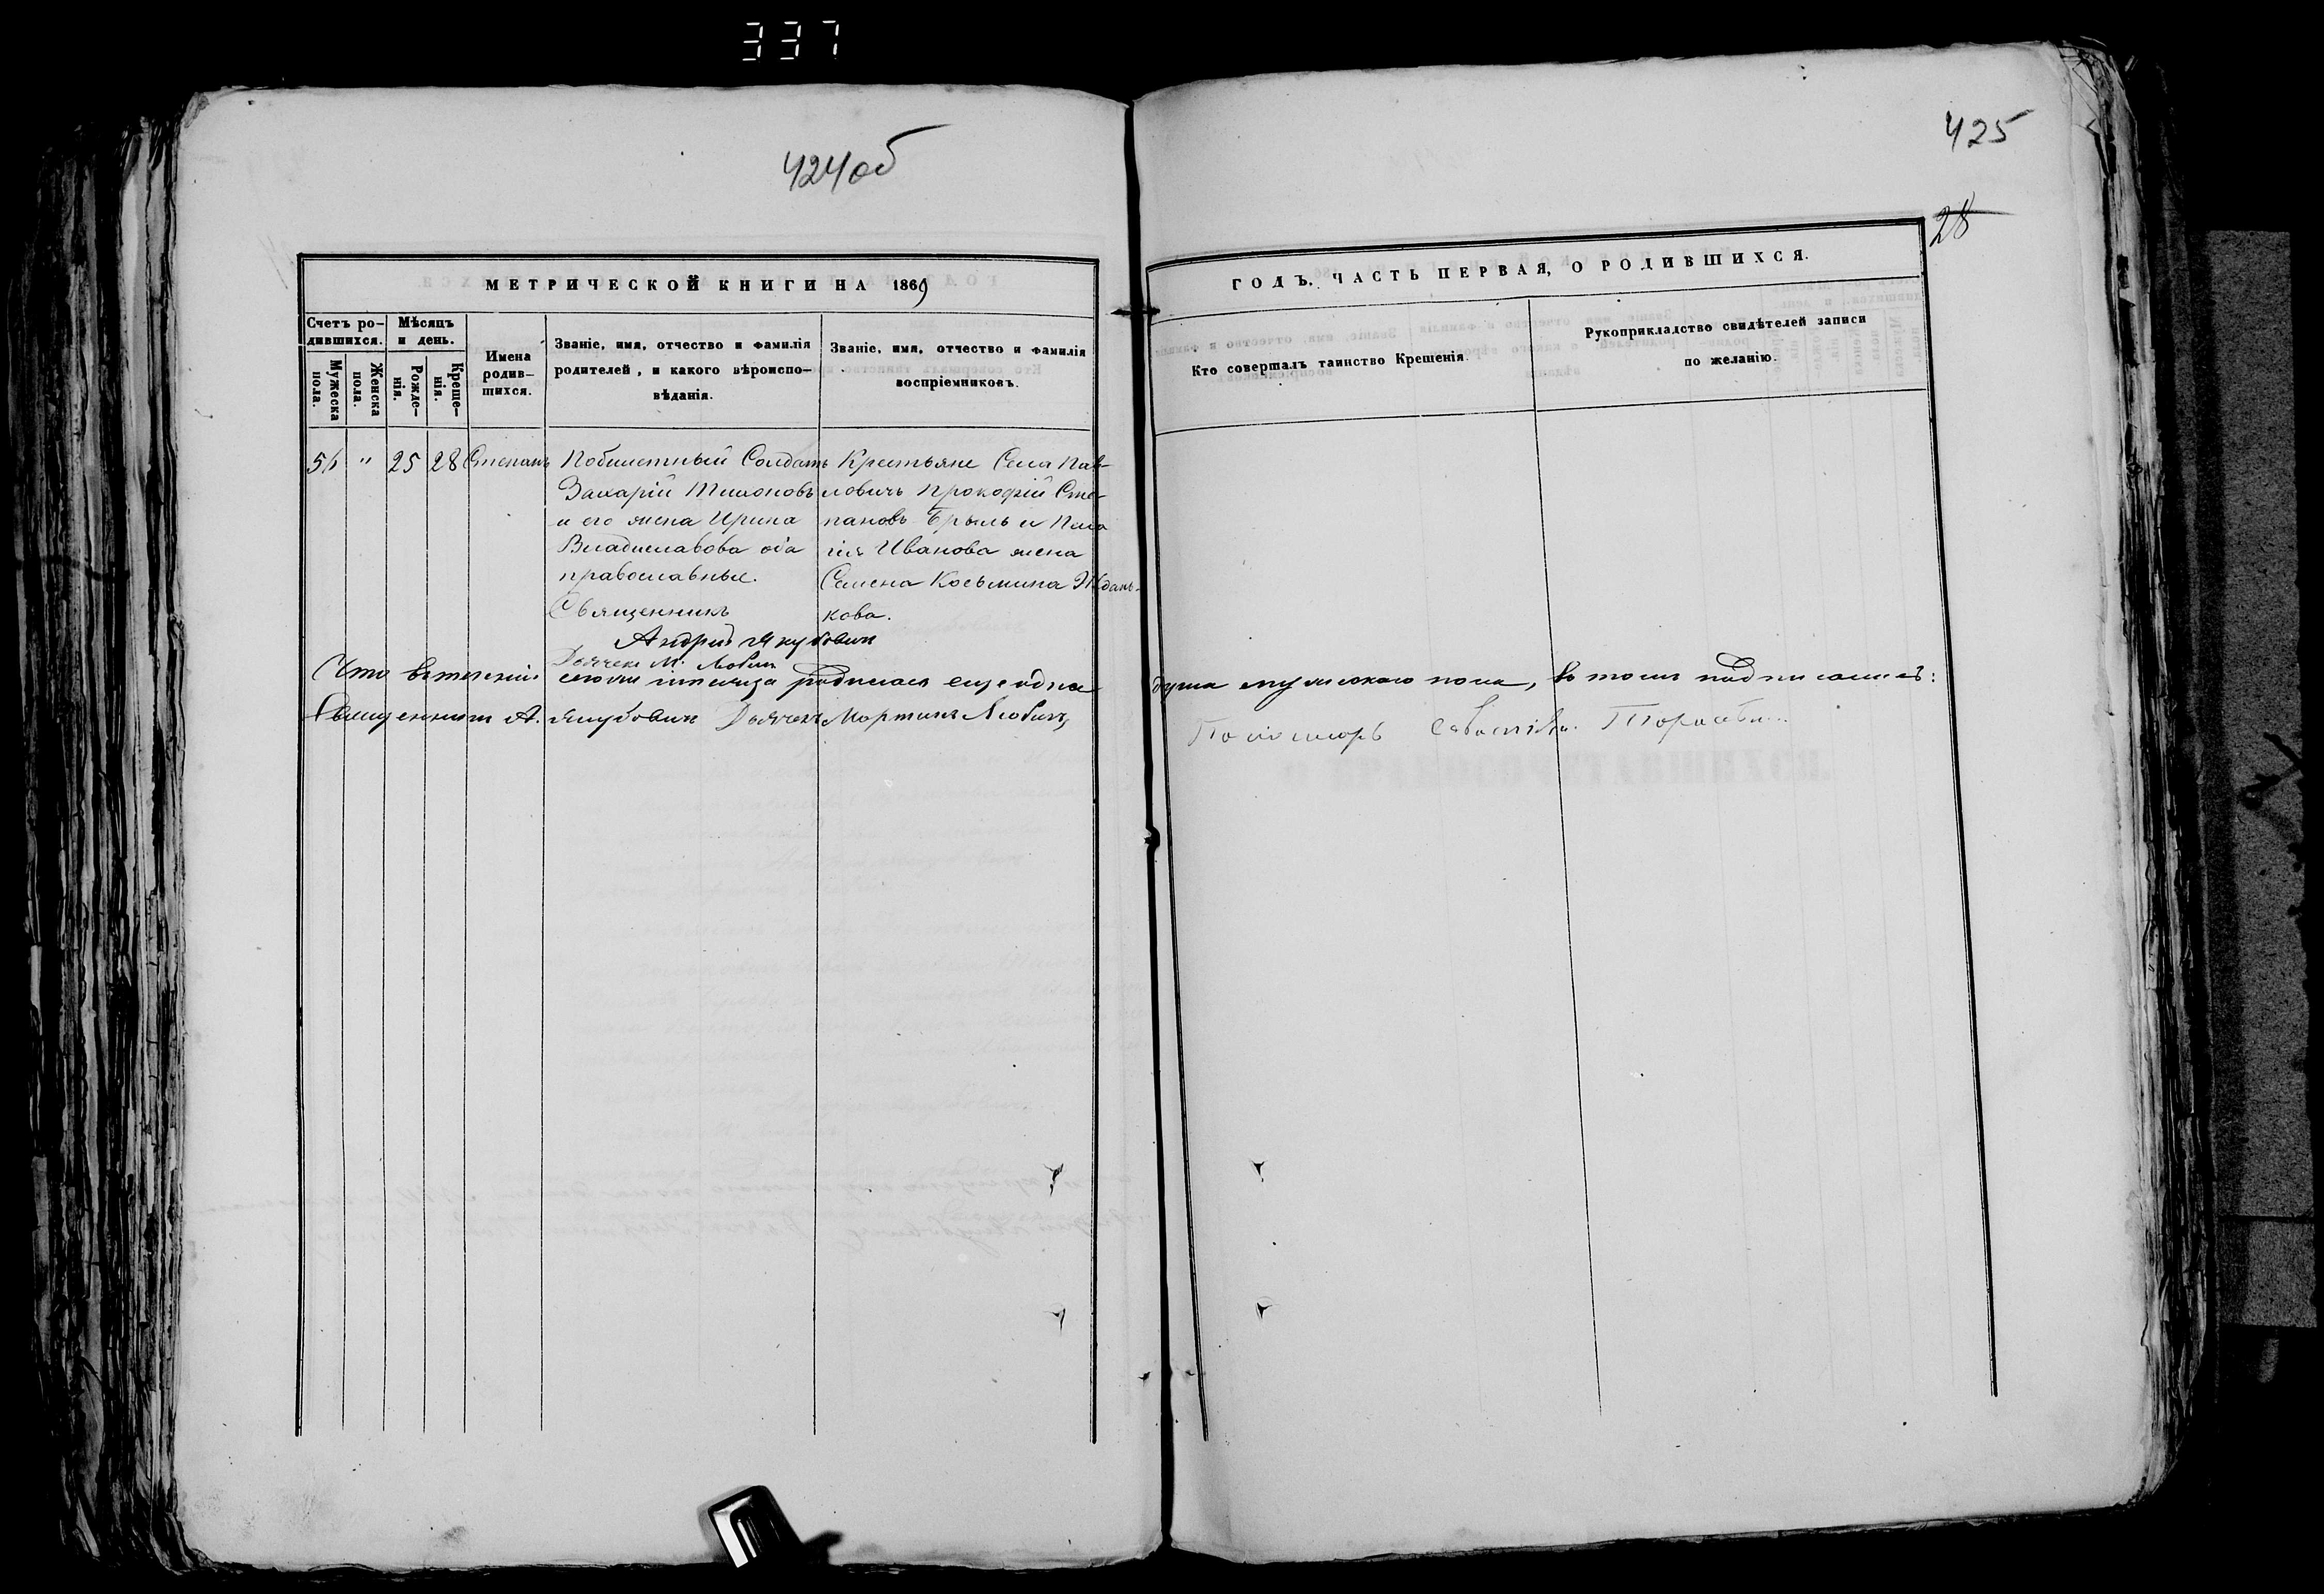 337
424об
425
28
МЕТРИЧЕСКОЙ КНИГИ НА 1869
ГОДЪ. ЧАСТЬ ПЕРВАЯ, О РОДИВШИХСЯ.
Счетъ ро-
дившихся.
Мужеска
пола.
Женска
пола.
Мѣсяцъ
и день.
Рожде-
нія.
Креще-
нія.
Имена
родив-
шихся.
Званіе, имя, отчество и фамилія
родителей, и какого вѣроиспо-
вѣданія.
Званіе, имя, отчество и фамилія
воспріемниковъ.
Кто совершалъ таинство Крещенія.
Рукоприкладство свидѣтелей записи
по желанію.
" 25 28 Степанъ
Побилетный Солдатъ
Захарій Тихоновъ
и его жена Ирина
Владиславова оба
православные.
Священникъ
Андрей Якубович
Дьячекъ М.
Крестьяне Села Пав-
ловичь Прокофій Сте-
пановъ Брыль и Пела
гія Иванова жена
Семена Косьмина Ждань-
кова.
Что втеченіи сего мѣсяца родилась еще одна
душа мужескаго пола, въ томъ подписались:
Священникъ А. Якубович Дьячекъ Мартинъ
Пономарь